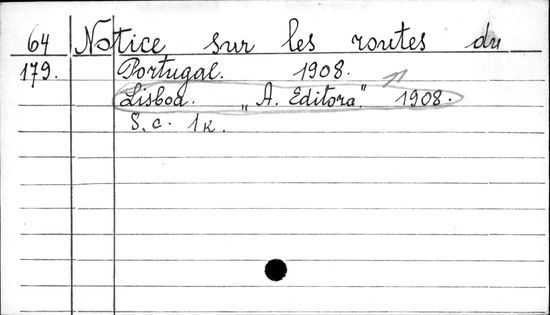 64 Notice sur les routes du
179. Portugal. 1908.
Lisboa. „A. Editora" 1908.
S.c. 1k.